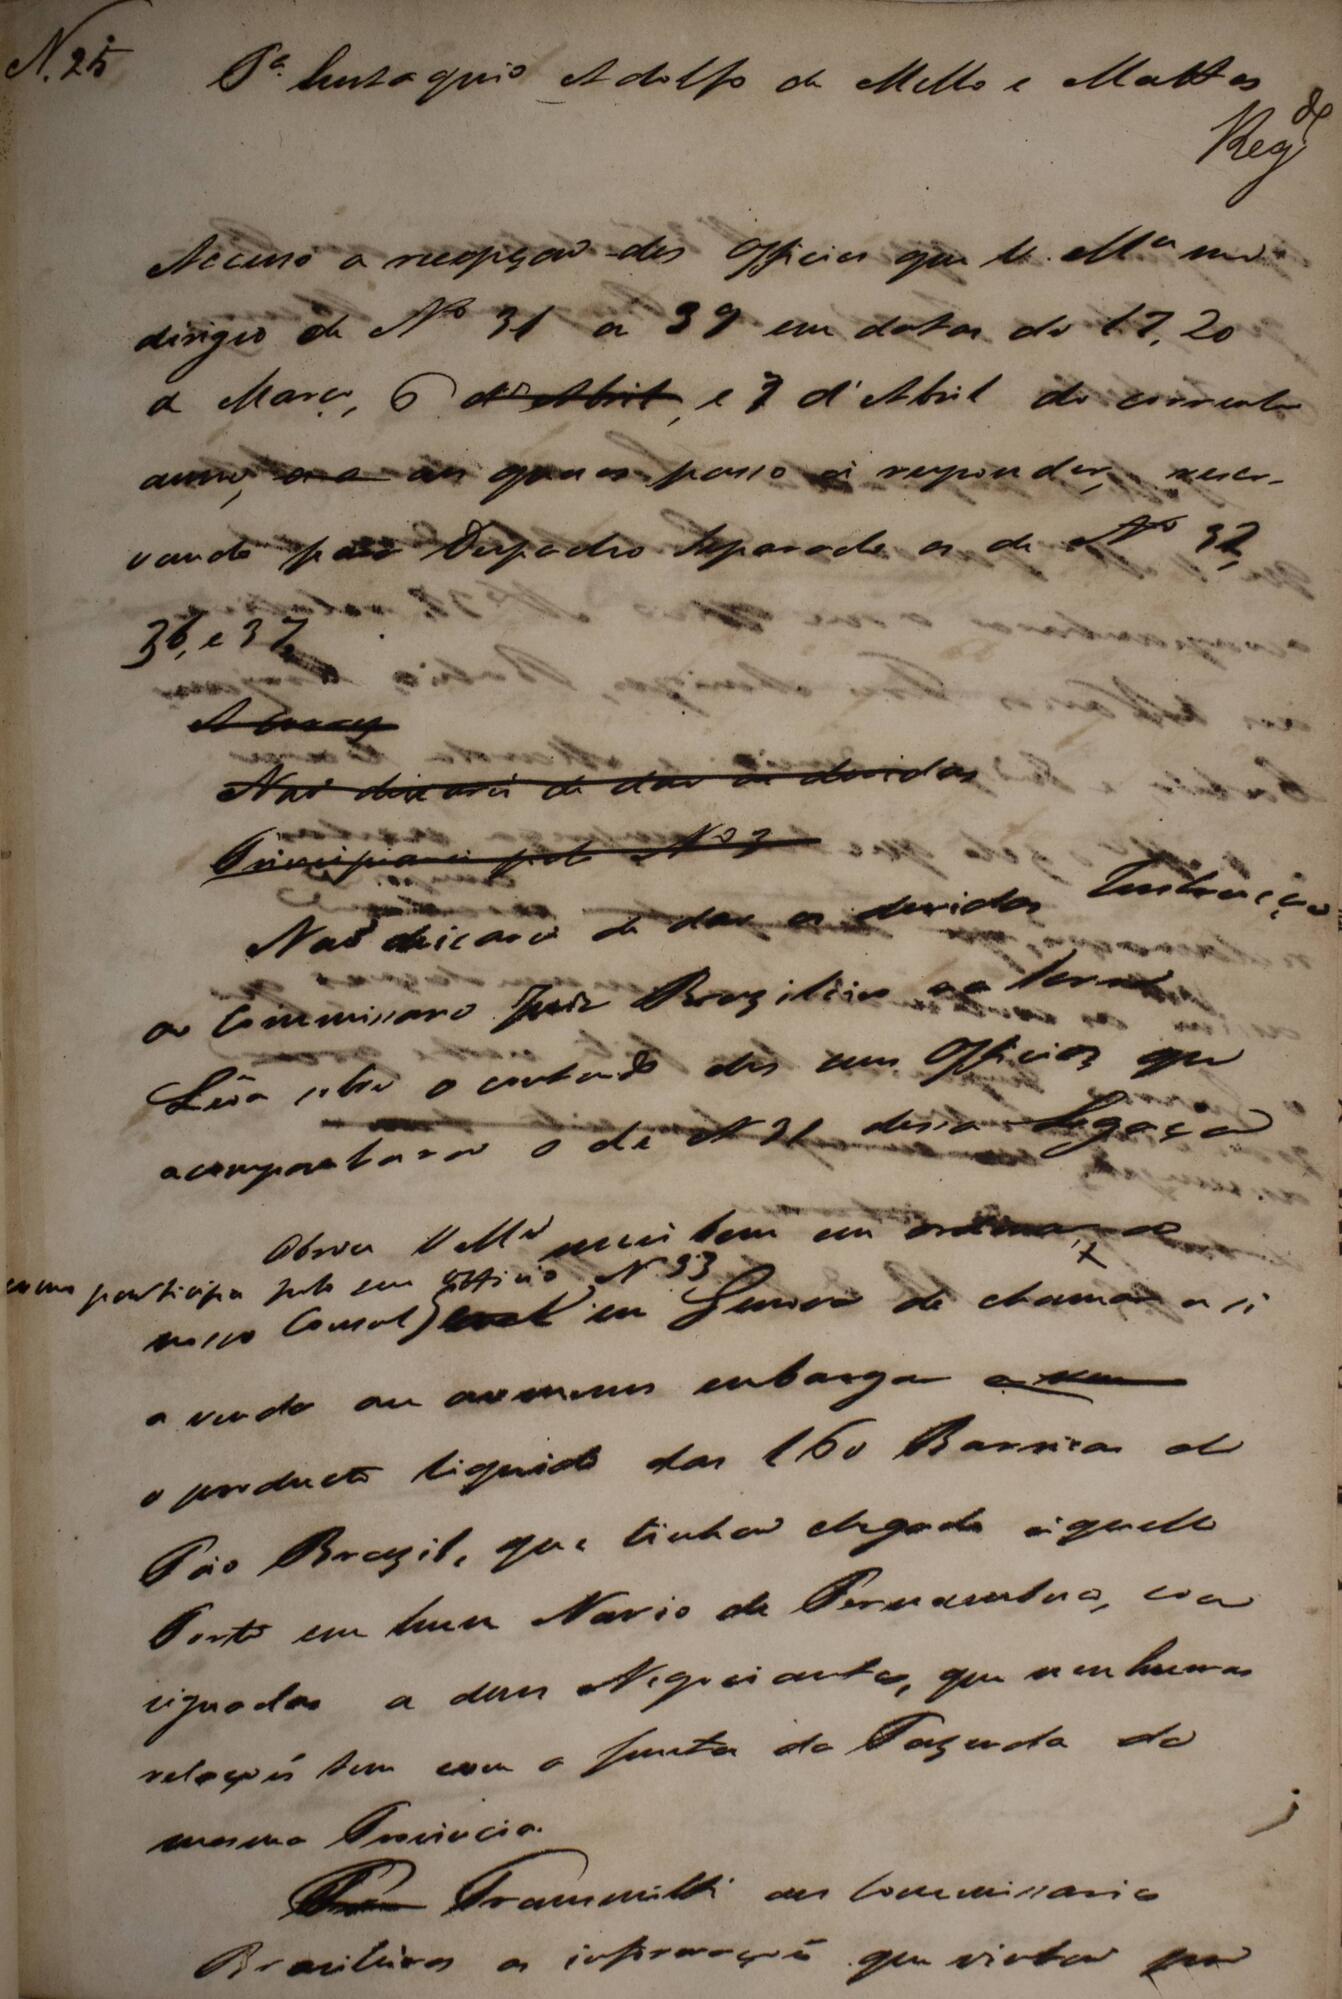 N. 25
Pª Eustaquio Adolfo de Mello e Mattos
Reg.de
Accuso a recepção dos Officios que V. Mce me
dirigio de Nº 31 a 39 em datas de 17, 20
de Março, 6 d'Abril, e 7 d'Abril do corrente
anno, aos quaes passo á responder, reser-
vando para Despacho separado os de Nº 32,
36, e 37.
Não deixarei de dar as devidas
Principiarei pelo Nº 3
Não deixarei de dar as devidas Instrucções
ao Commissario Juiz Brazileiro em Serra
Leôa sobre o contendo dos seus Officios que
acompanharão o de N 31 dessa Legação
Obrou VMce mui bem em ordenar ao
como participa pelo seu Officio N. 33
nosso Consul em Genova de chamar a si
a venda ou ao menos embargar
o producto liquido das 160 Barricas de
Páo Brazil, que tinhão chegado áquelle
Porto em hum Navio de Pernambuco, con
signadas a dous Negociantes, que nenhumas
relações tem com a Junta da Fazenda da
mesma Provincia.
Transmitti aos Commissarios
Brasileiros as informações que vinhão por